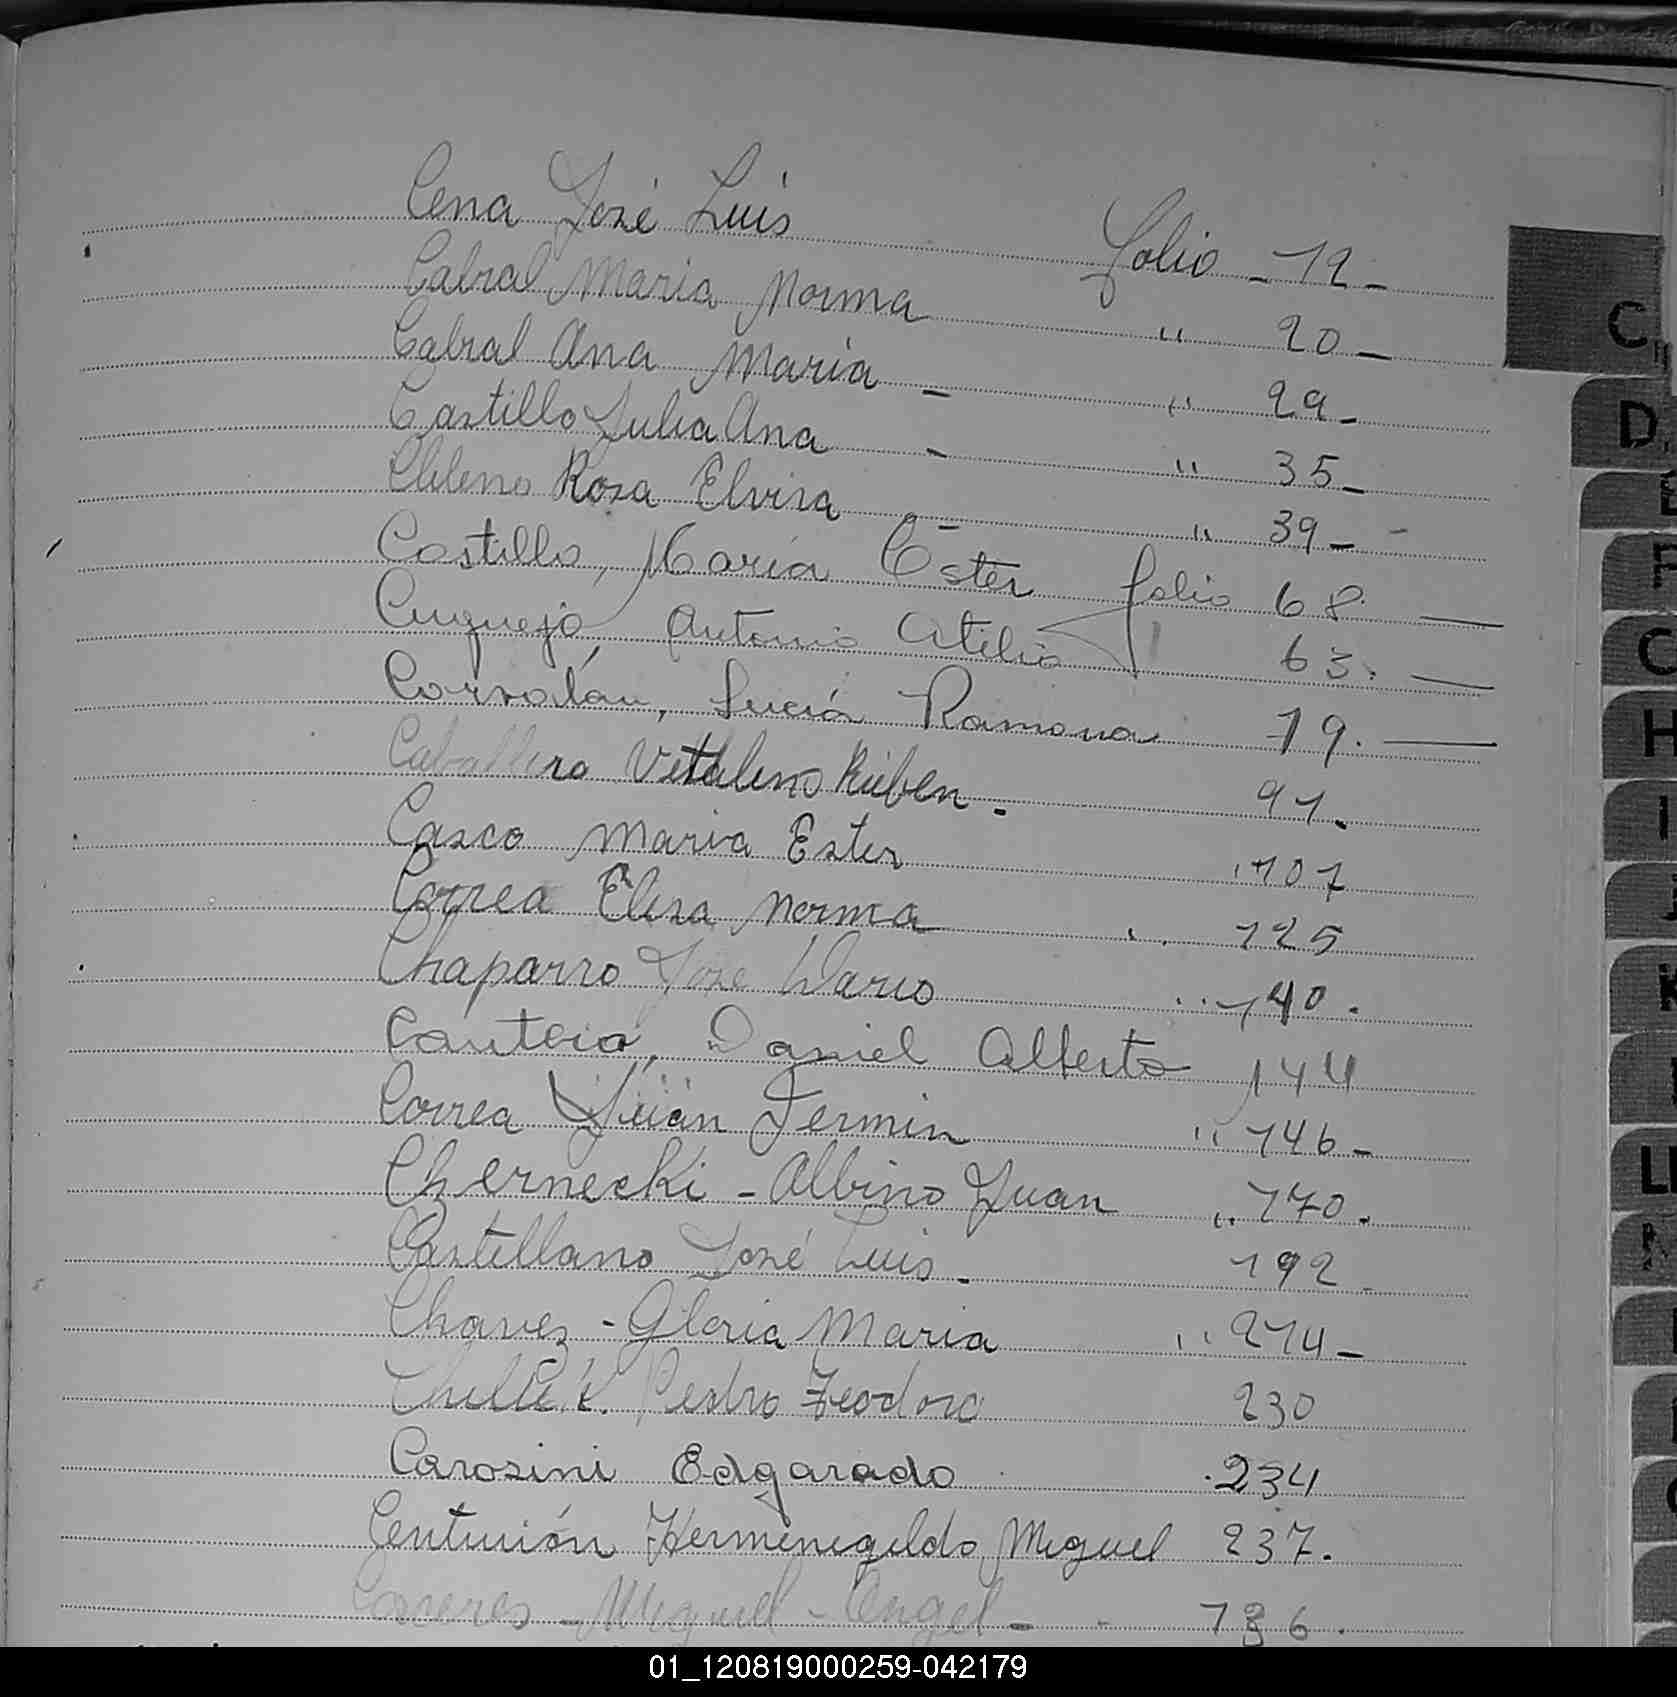 Cena José Luis folio - 12 -
Cabral Maria Norma " 20 -
Cabral Ana Maria - " 29 -
Castillo Julia Ana - " 35 -
Chileno Rosa Elvira - " 39 -
Castillo, María Ester folio 68. —
Cuquejo, Antonio Atilio 63. —
Corvalán, Lucía Ramona 79. —
Caballero Vitalino Rúben. 91.
Casco Maria Ester 107
Correa Elisa Norma " 125
Chaparro José Dario " 140.
Cauteio, Daniel Alberto 144
Correa Júan Fermin " 146 -
Chernecki - Albino Juan " 170.
Castellano José Luis. 192
Chavez - Gloria Maria " 214 -
Pedro Teodoro 230
Carosini Edgarado 234
Centurión Hermenegildo Miguel 237.
Caseres - Miguel - Angel - 136.
C
D
F
H
I
K
01_120819000259-042179